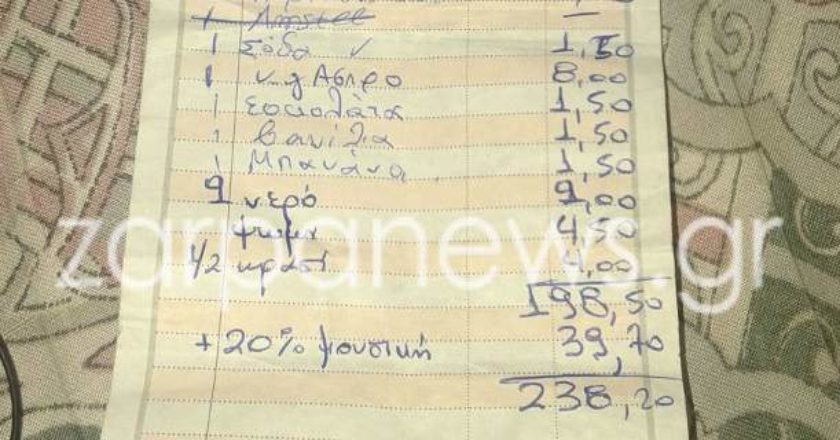 1 Amstel —
1 Σόδα ✓ 1,50
1 ν.g Άσπρο 8,00
1 Σοκολάτα 1,50
1 Βανίλια 1,50
1 Μπανάνα 1,50
9 νερό 9,00
ψωμι 4,50
zarpanews.gr
1/2 κρασί 4,00
198,50
+20% μουσική 39,70
238,20